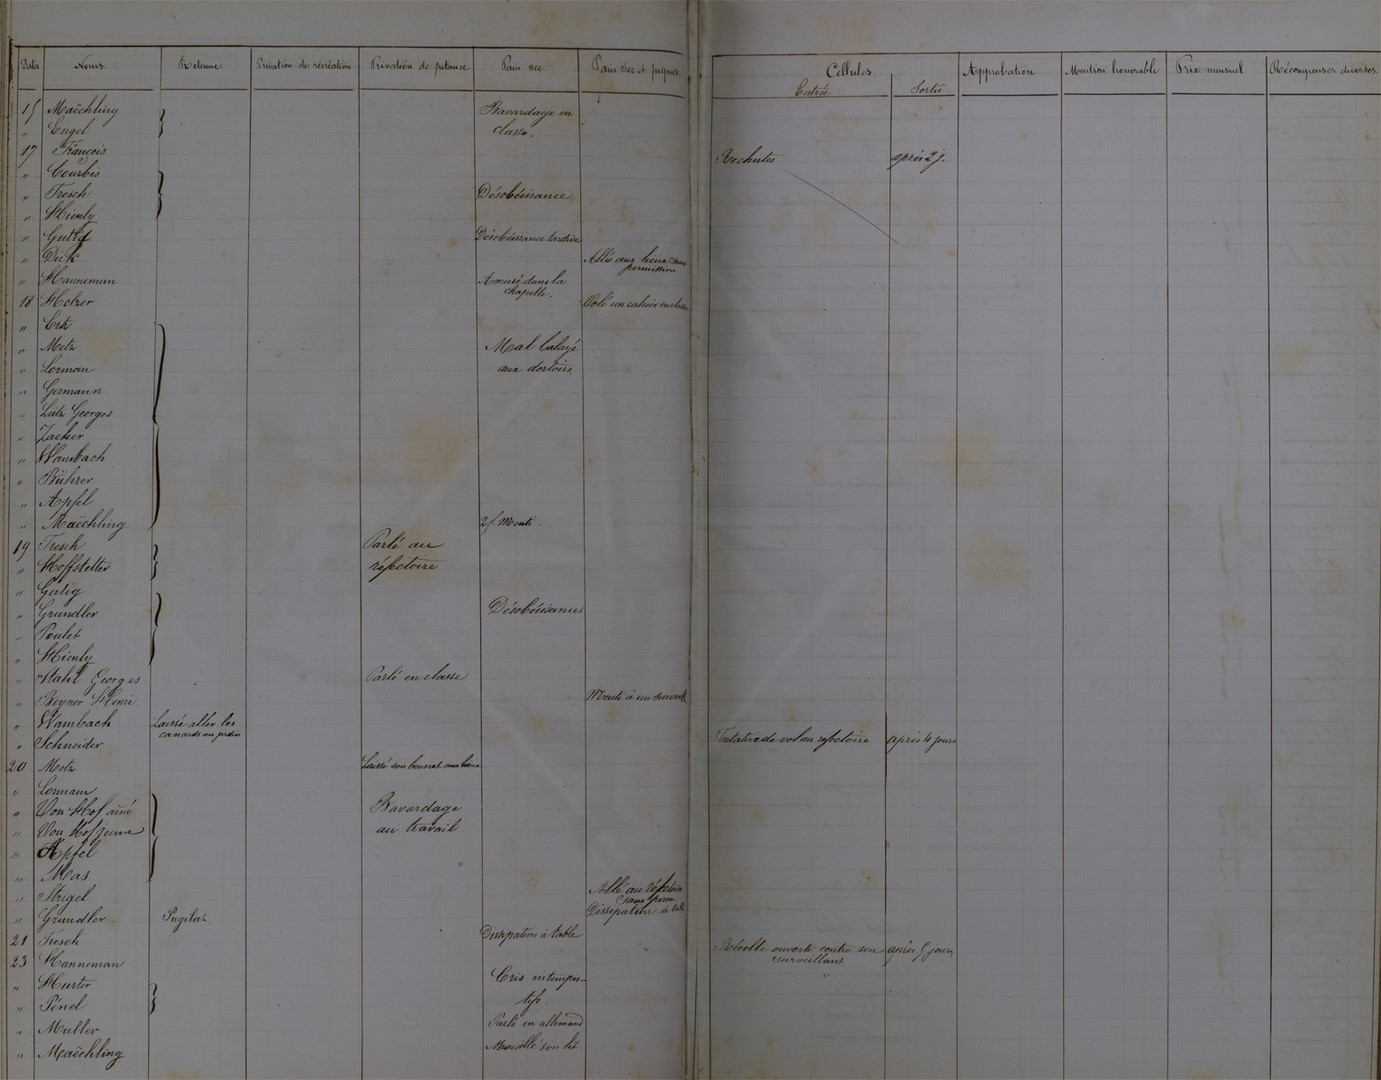 Dates Noms Retenue Privation de récréation Privation de pitance Pain sec Pain sec et piquet Cellules Approbation Mention honorable Prix mensuel Récompenses diverses
Entrée Sortie
15 Maëchling Bavardage en
" Engel classe.
17 François Rechutes après 2 j.
" Courbis
" Tresch Désobéissance
" Hienly
" Gutig Désobéissance tardive
" Dick Allé aux lieux sans
permission
" Hanneman Amusé dans la
chapelle.
18 Holzer Volé un cahier en classe
" Ertz
" Metz Mal balayé
" Lorman aux dortoirs.
" Germann
" Lutz Georges
" Zacker
" Wambach
" Bührer
" Apfel
" Maëchling 2f. Menti
19 Tresch Parlé au
" Hoffstetter réfectoire
" Gutig
" Grundler Désobéissance
" Poulet
" Hienly
" Stahl Georges Parlé en classe
" Beyner Henri Menti à un
" Wambach Laissé aller les
canards au jardin
" Schneider Tentative de vol au réfectoire après 4 jours
20 Metz Laissé son bonnet aux lieux
" Lomann
" Von Hof aîné Bavardage
" Von Hof jeune au travail
" Apfel
" Mas
" Strigel Allé au réfectoire
sans perm.
" Grundler Pugilat Dissipation à table
21 Tresch Dissipation à table
23 Hanneman Révolte ouverte contre son après 5 jours
surveillant
" Hurter Cris intempes-
" Pénel tifs.
" Muller Parlé en allemand
" Maëchling Mouillé son lit